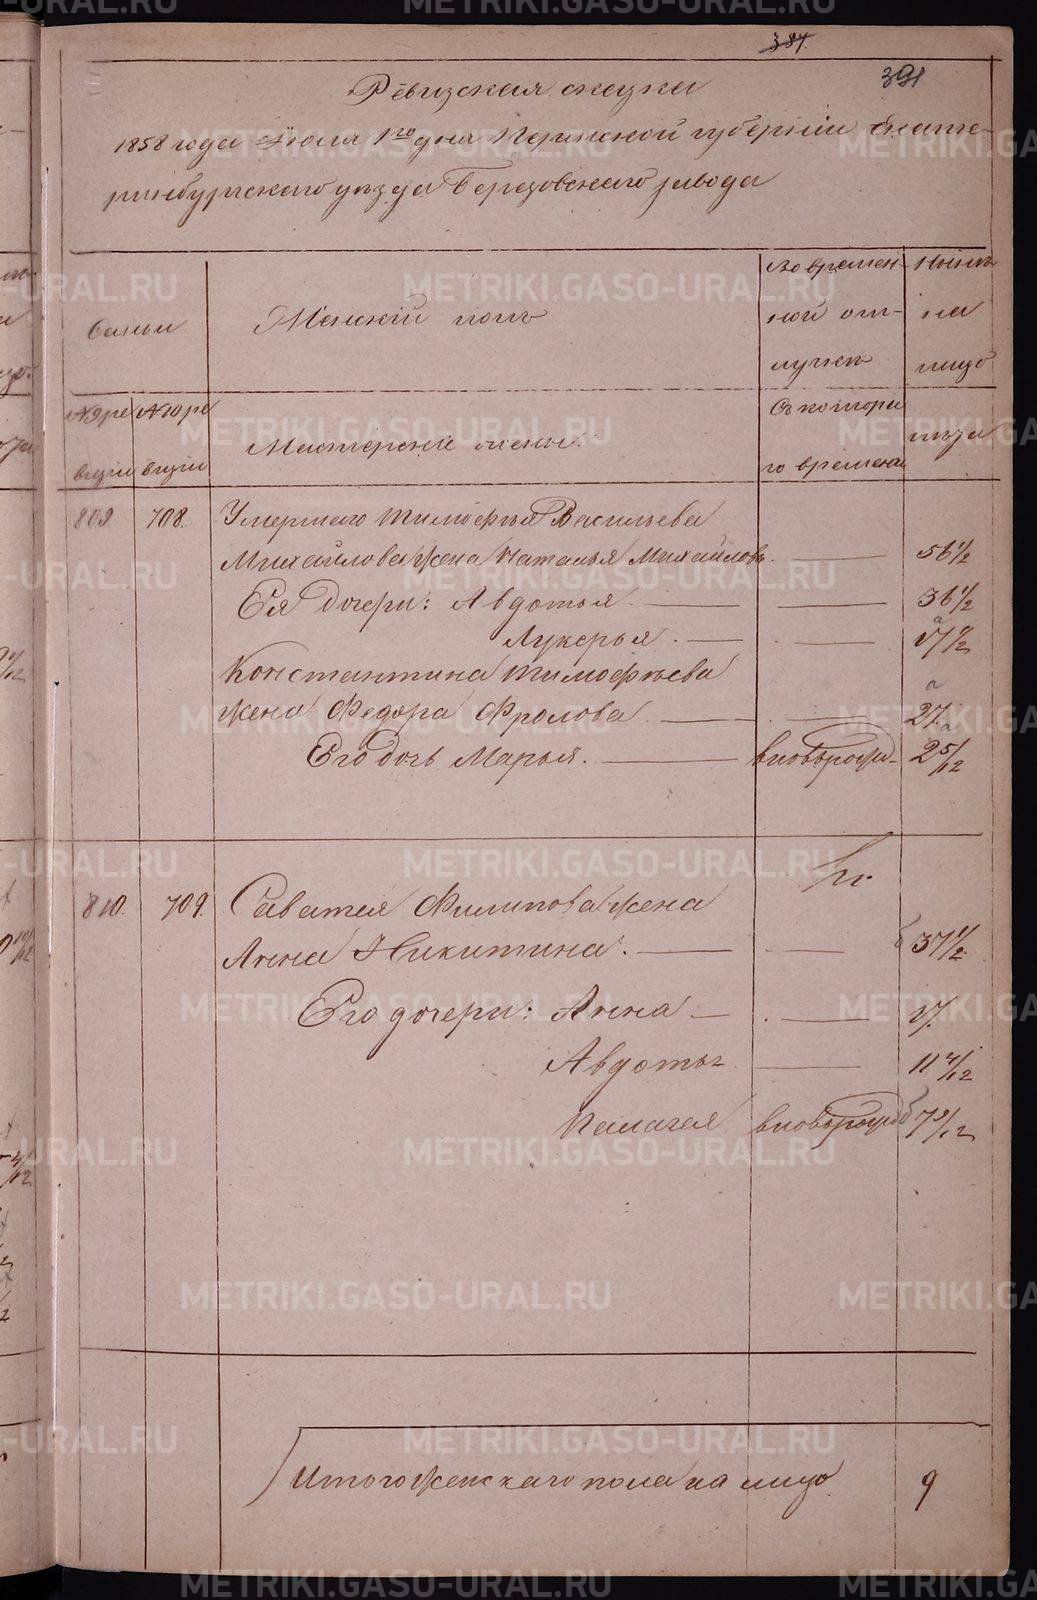 384.
391
Ревизская скаска
1858 года Июля 1го дня Пермской губернии Екате-
ринбургского уѣзда Березовского завода
Семьи
Женский полъ
Во времен-
ной от-
лучкѣ
Нынѣ
на
лицо
№ по 9 ре
визии
№ 10 ре
визии
Мастерские жены:
Съ котора
го времени
лѣта
809 708. Умершаго Тимофья Васильева
Михайлова жена Наталья Михайлова. 56 1/2
Ея дочери: Авдотья. 36 1/2
Лукерья.
Константина Тимофѣева
жена Федора Фролова 27.
Его дочь Марья. вновьрожд- 2 5/12
810. 709. Саватея Филипова жена
Анна Никитина. 37 1/2
Его дочери: Анна 17.
Авдотья 11 4/12
Палагея вновьрожд 7 9/12
Итого Женскаго пола на лицо 9
METRIKI.GASO-URAL.RU